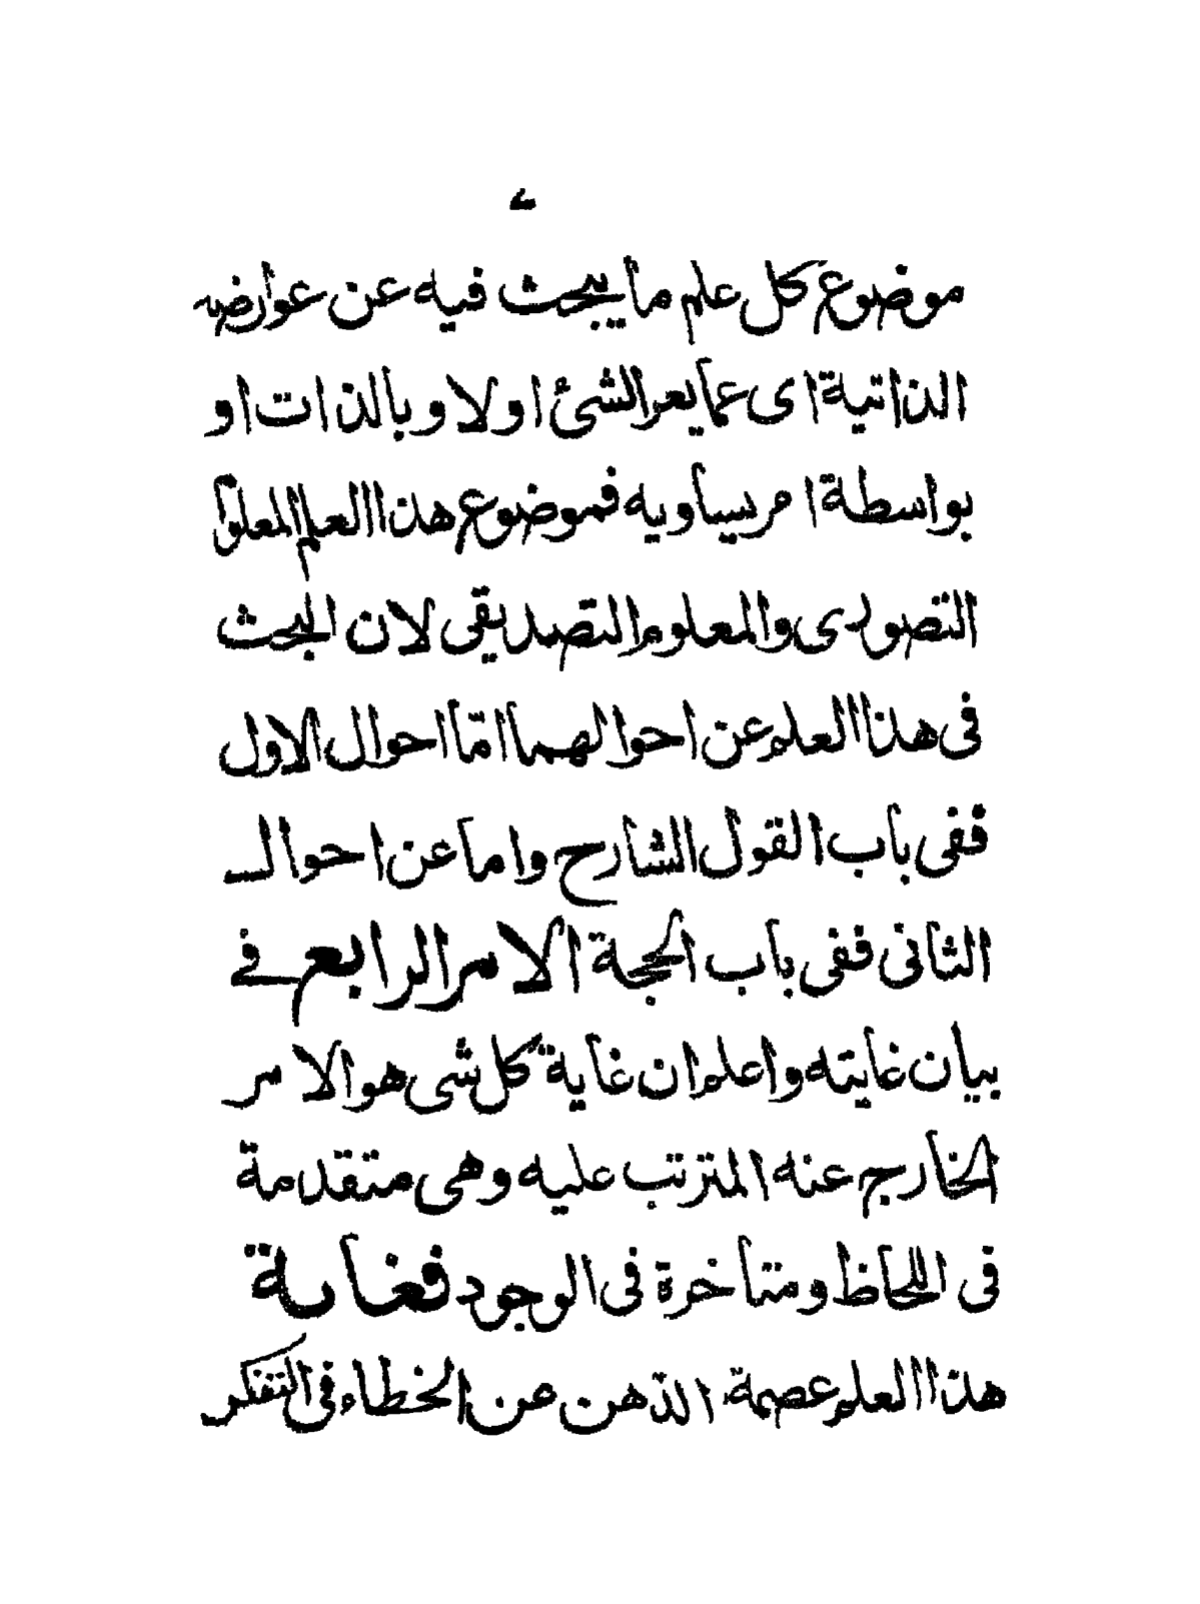 موضوع كل علم ما يبحث فيه عن عوارضه
الذاتية اى عما يعرالشئ اولا و بالذات او
بواسطة امر يساويه فموضوع هذا العلم المعلوم
التصورى والمعلوم التصديقى لان البحث
فى هذا العلم عن احوالهما امّا احوال الاول
ففى باب القول الشارح واما عن احوال
الثانى ففى باب الحجة الامر الرابع فى
بيان غايته واعلم ان غاية كل شى هو الامر
الخارج عنه المترتب عليه وهى متقدمة
فى اللحاظ ومتأخرة فى الوجود فغاية
هذا العلم عصمة الذهن عن الخطاء فى التفكر